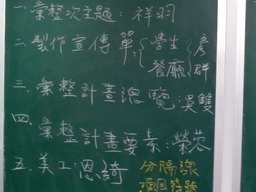 一.彙整次主題:祥羽
二.製作宣傳單{學生}彥
餐廳 群
三.彙整計畫總覽:漢雙
四.彙整計畫要素:榮蓉
五.美工:恩綺 分隔線
項目符號